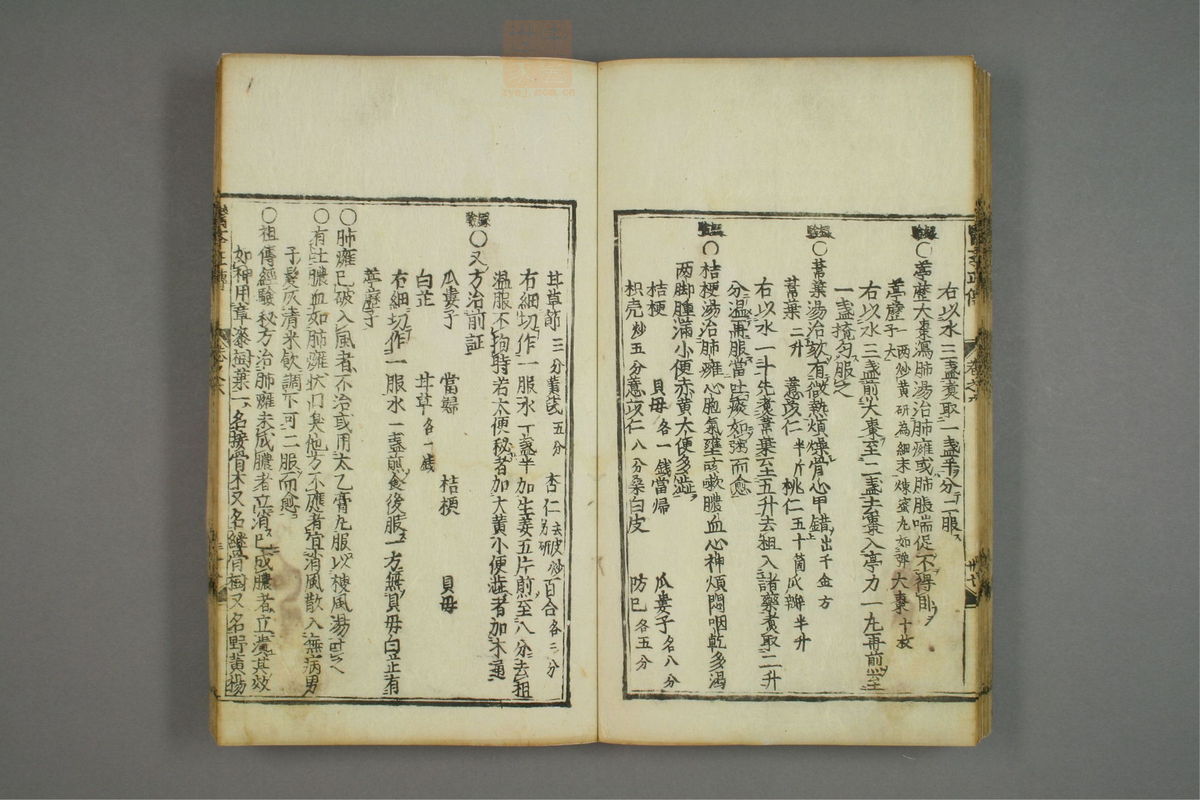 右以水三盞煮取一盞半分二服
○葶藶大棗瀉肺湯治肺癰或肺脹喘促不得卧
葶藶子一两炒黄研為細末煉蜜丸如弹大 大棗十枚
右以水三盞煎大棗至二盞去棗入葶力一丸再煎至
一盞攪匀服之
○葦葉湯治欬有微熱煩燥胷心甲錯出千金方
葦葉二升 薏苡仁半斤 桃仁五十箇 瓜瓣半升
右以水一斗先煮葦葉至五升去粗入諸藥煮取二升
分温再服當吐痰如粥而愈
○桔梗湯治肺癰心胞氣壅咳嗽膿血心神煩悶咽乾多渴
两脚腫滿小便赤黄大便多澁
桔梗 貝母各一錢 當帰 瓜蔞子各八分
枳壳炒五分 薏苡仁八分 桑白皮 防已各五分
甘草節三分 黄芪五分 杏仁去皮炒另研 百合各三分
右細切作一服水一盞半加生姜五片煎至八分去粗
温服不拘時若大便秘者加大黄小便澁者加木通
○又方治前証
瓜蔞子 當帰 桔梗 貝母
白芷 甘草各一錢
右細切作一服水一盞煎食後服一方無貝母白芷有
葶藶子
○肺癰已破入風者不治或用太乙膏丸服以棱風湯
○有吐膿血如肺癰状口臭他方不應者宜消風散入無病男
子髪灰清米飲調下可二服而愈
○祖傳經驗秘方治肺癰未成膿者立消已成膿者立潰其效
如神用章漆樹葉一名接骨木又名継骨樹又名野黄楊